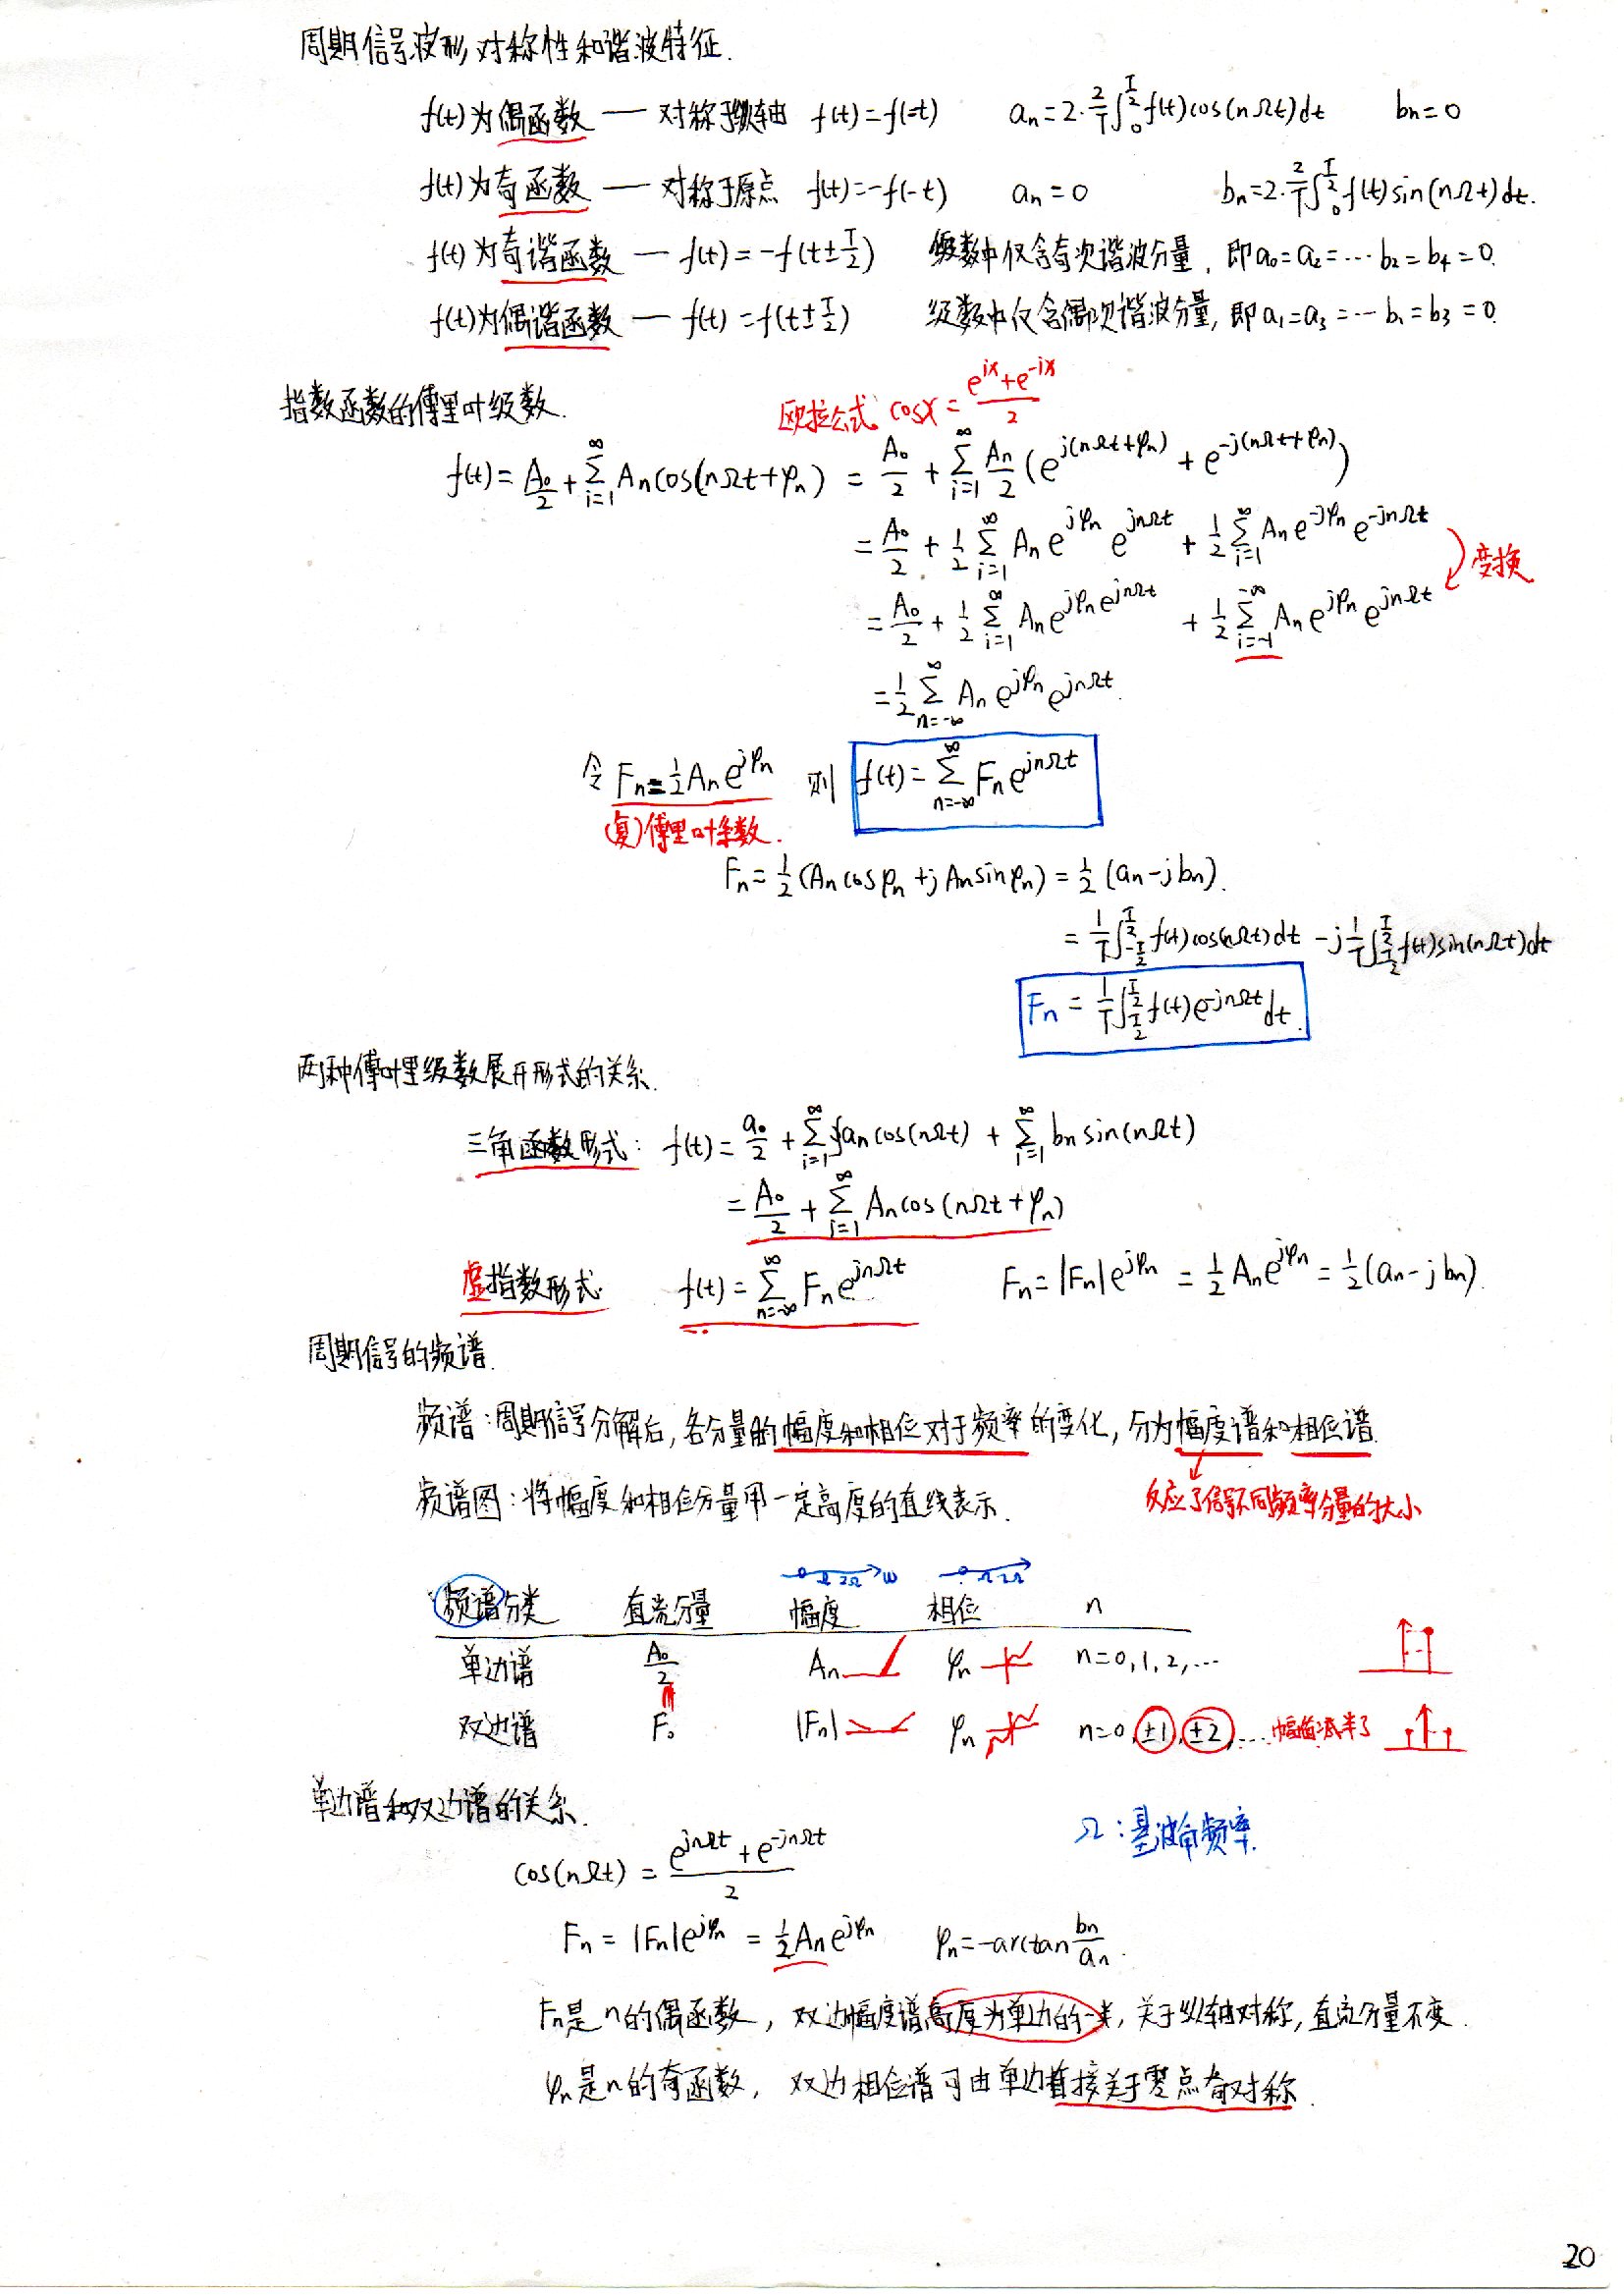 周期信号波形对称性和谐波特征.
f(t)为偶函数 — 对称于纵轴 f(t)=f(-t) aₙ=2·2/T∫₀^{T/2} f(t)cos(nΩt)dt bₙ=0
f(t)为奇函数 — 对称于原点 f(t)=-f(-t) aₙ=0 bₙ=2·2/T∫₀^{T/2} f(t)sin(nΩt)dt.
f(t)为奇谐函数 — f(t)=-f(t±T/2) 级数中仅含奇次谐波分量, 即a₀=a₂=…b₂=b₄=0.
f(t)为偶谐函数 — f(t)=f(t±T/2) 级数中仅含偶次谐波分量, 即a₁=a₃=…b₁=b₃=0.
欧拉公式 cosx=(e^{ix}+e^{-ix})/2
指数函数的傅里叶级数.
f(t)=A₀/2+∑_{i=1}^{∞}Aₙcos(nΩt+φₙ) = A₀/2+∑_{i=1}^{∞}Aₙ/2(e^{j(nΩt+φₙ)}+e^{-j(nΩt+φₙ)})
=A₀/2+1/2∑_{i=1}^{∞}Aₙe^{jφₙ}e^{jnΩt}+1/2∑_{i=1}^{∞}Aₙe^{-jφₙ}e^{-jnΩt}
变换
=A₀/2+1/2∑_{i=1}^{∞}Aₙe^{jφₙ}e^{jnΩt}+1/2∑_{i=-1}^{-∞}Aₙe^{jφₙ}e^{jnΩt}
=1/2∑_{n=-∞}^{∞}Aₙe^{jφₙ}e^{jnΩt}.
令Fₙ=1/2Aₙe^{jφₙ} 则 f(t)=∑_{n=-∞}^{∞}Fₙe^{jnΩt}
(复)傅里叶系数.
Fₙ=1/2(Aₙcosφₙ+jAₙsinφₙ)=1/2(aₙ-jbₙ).
=1/T∫_{-T/2}^{T/2} f(t)cos(nΩt)dt-j1/T∫_{-T/2}^{T/2} f(t)sin(nΩt)dt
Fₙ=1/T∫_{-T/2}^{T/2} f(t)e^{-jnΩt}dt.
两种傅叶里级数展开形式的关系.
三角函数形式: f(t)=a₀/2+∑_{i=1}^{∞}aₙcos(nΩt)+∑_{i=1}^{∞}bₙsin(nΩt)
=A₀/2+∑_{i=1}^{∞}Aₙcos(nΩt+φₙ)
虚指数形式: f(t)=∑_{n=-∞}^{∞}Fₙe^{jnΩt} Fₙ=|Fₙ|e^{jφₙ}=1/2Aₙe^{jφₙ}=1/2(aₙ-jbₙ).
周期信号的频谱.
频谱:周期信号分解后,各分量的幅度和相位对于频率的变化,分为幅度谱和相位谱.
反应了信号不同频率分量的大小
频谱图:将幅度和相位分量用一定高度的直线表示.
0 Ω 2Ω ω 0 Ω 2Ω
频谱分类 直流分量 幅度 相位 n
单边谱 A₀/2 Aₙ φₙ n=0,1,2,…
双边谱 F₀ |Fₙ| φₙ n=0,±1,±2,… 幅值减半了
单边谱和双边谱的关系.
Ω:基波角频率.
cos(nΩt)=(e^{jnΩt}+e^{-jnΩt})/2
Fₙ=|Fₙ|e^{jφₙ}=1/2Aₙe^{jφₙ} φₙ=-arctan bₙ/aₙ.
Fₙ是n的偶函数, 双边幅度谱高度为单边的一半,关于纵轴对称,直流分量不变.
φₙ是n的奇函数, 双边相位谱可由单边直接关于零点奇对称.
20